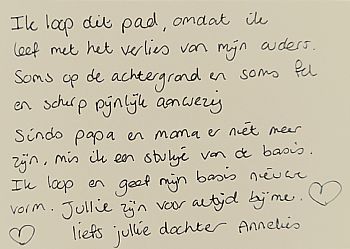 Ik loop dit pad, omdat ik
leef met het verlies van mijn ouders.
Soms op de achtergrond en soms fel
en scherp pijnlijk aanwezig
Sinds papa en mama er niet meer
zijn, mis ik een stukje van de basis.
Ik loop en geef mijn basis nieuwe
vorm. Jullie zijn voor altijd bij me.
liefs jullie dochter Annelies